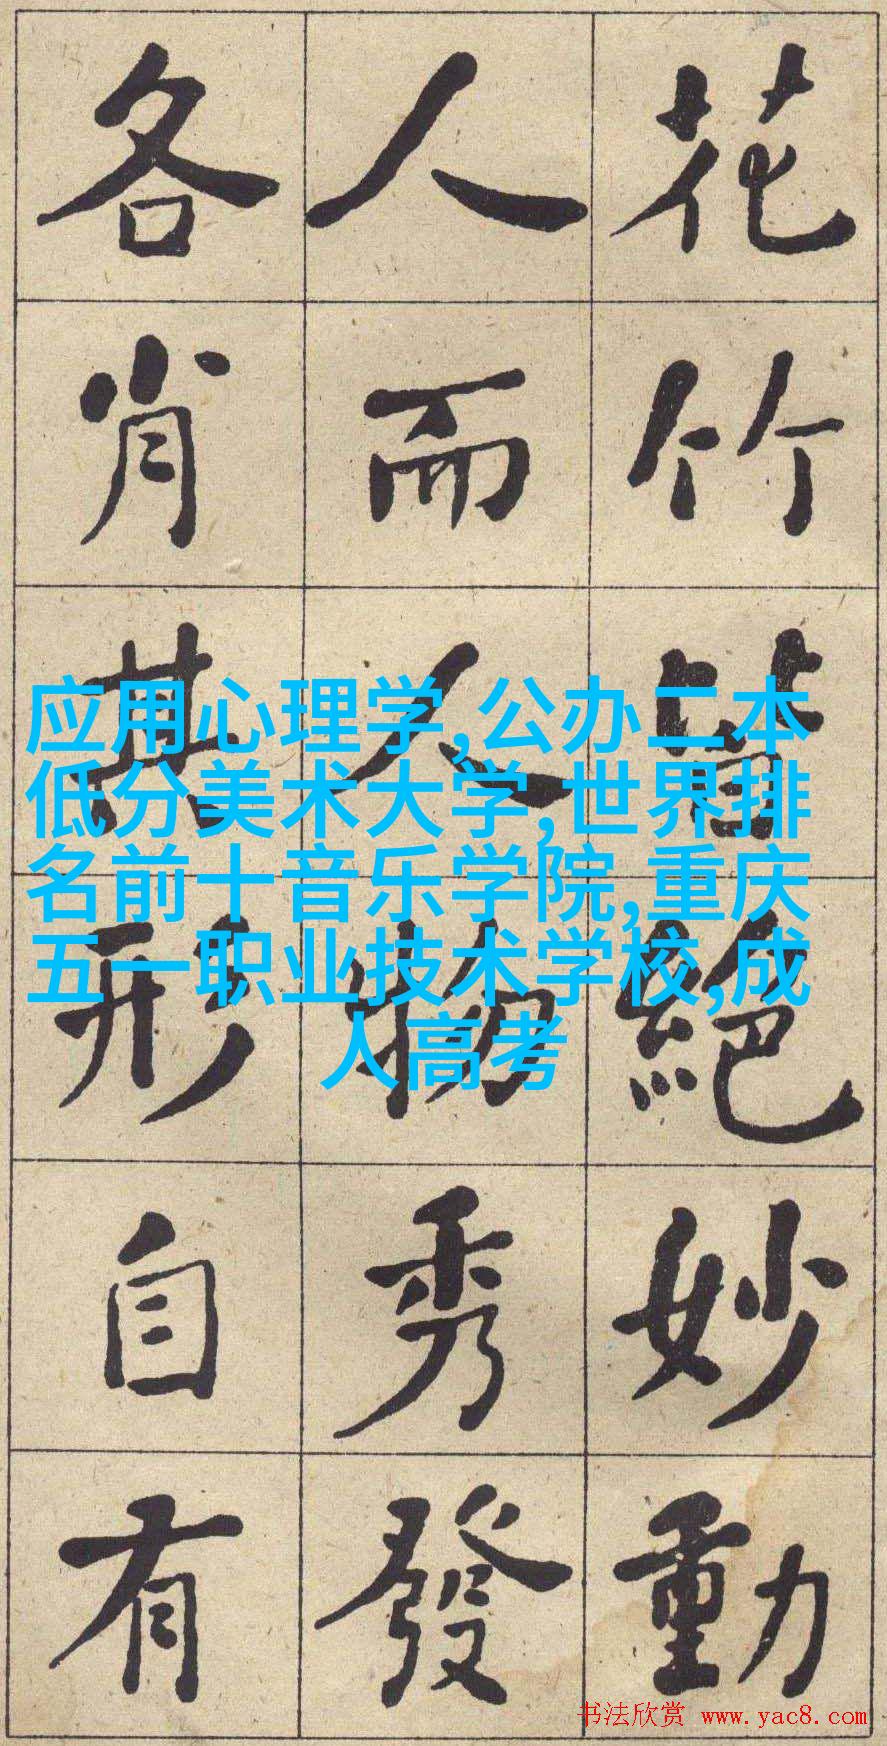 花竹皆絶妙動
人而人物秀發
各肖其形自有
应用心理学,公办二本
低分美术大学,世界排
名前十音乐学院,重庆
五一职业技术学校,成
人高考
书法欣赏 www.yac8.com